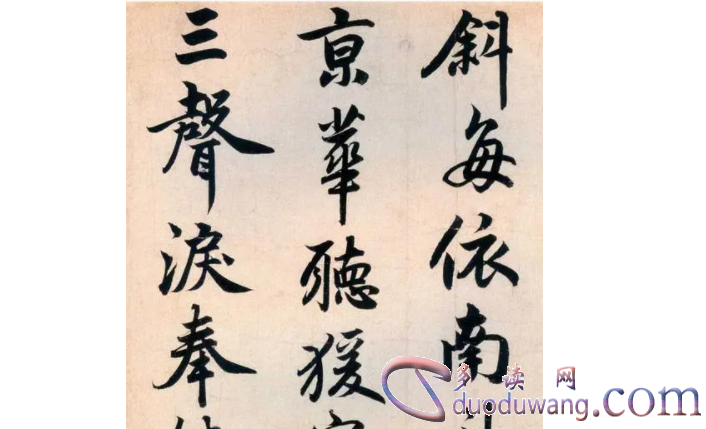 斜每依南
京華聽猨
三聲淚奉
多读网
duoduwang.com